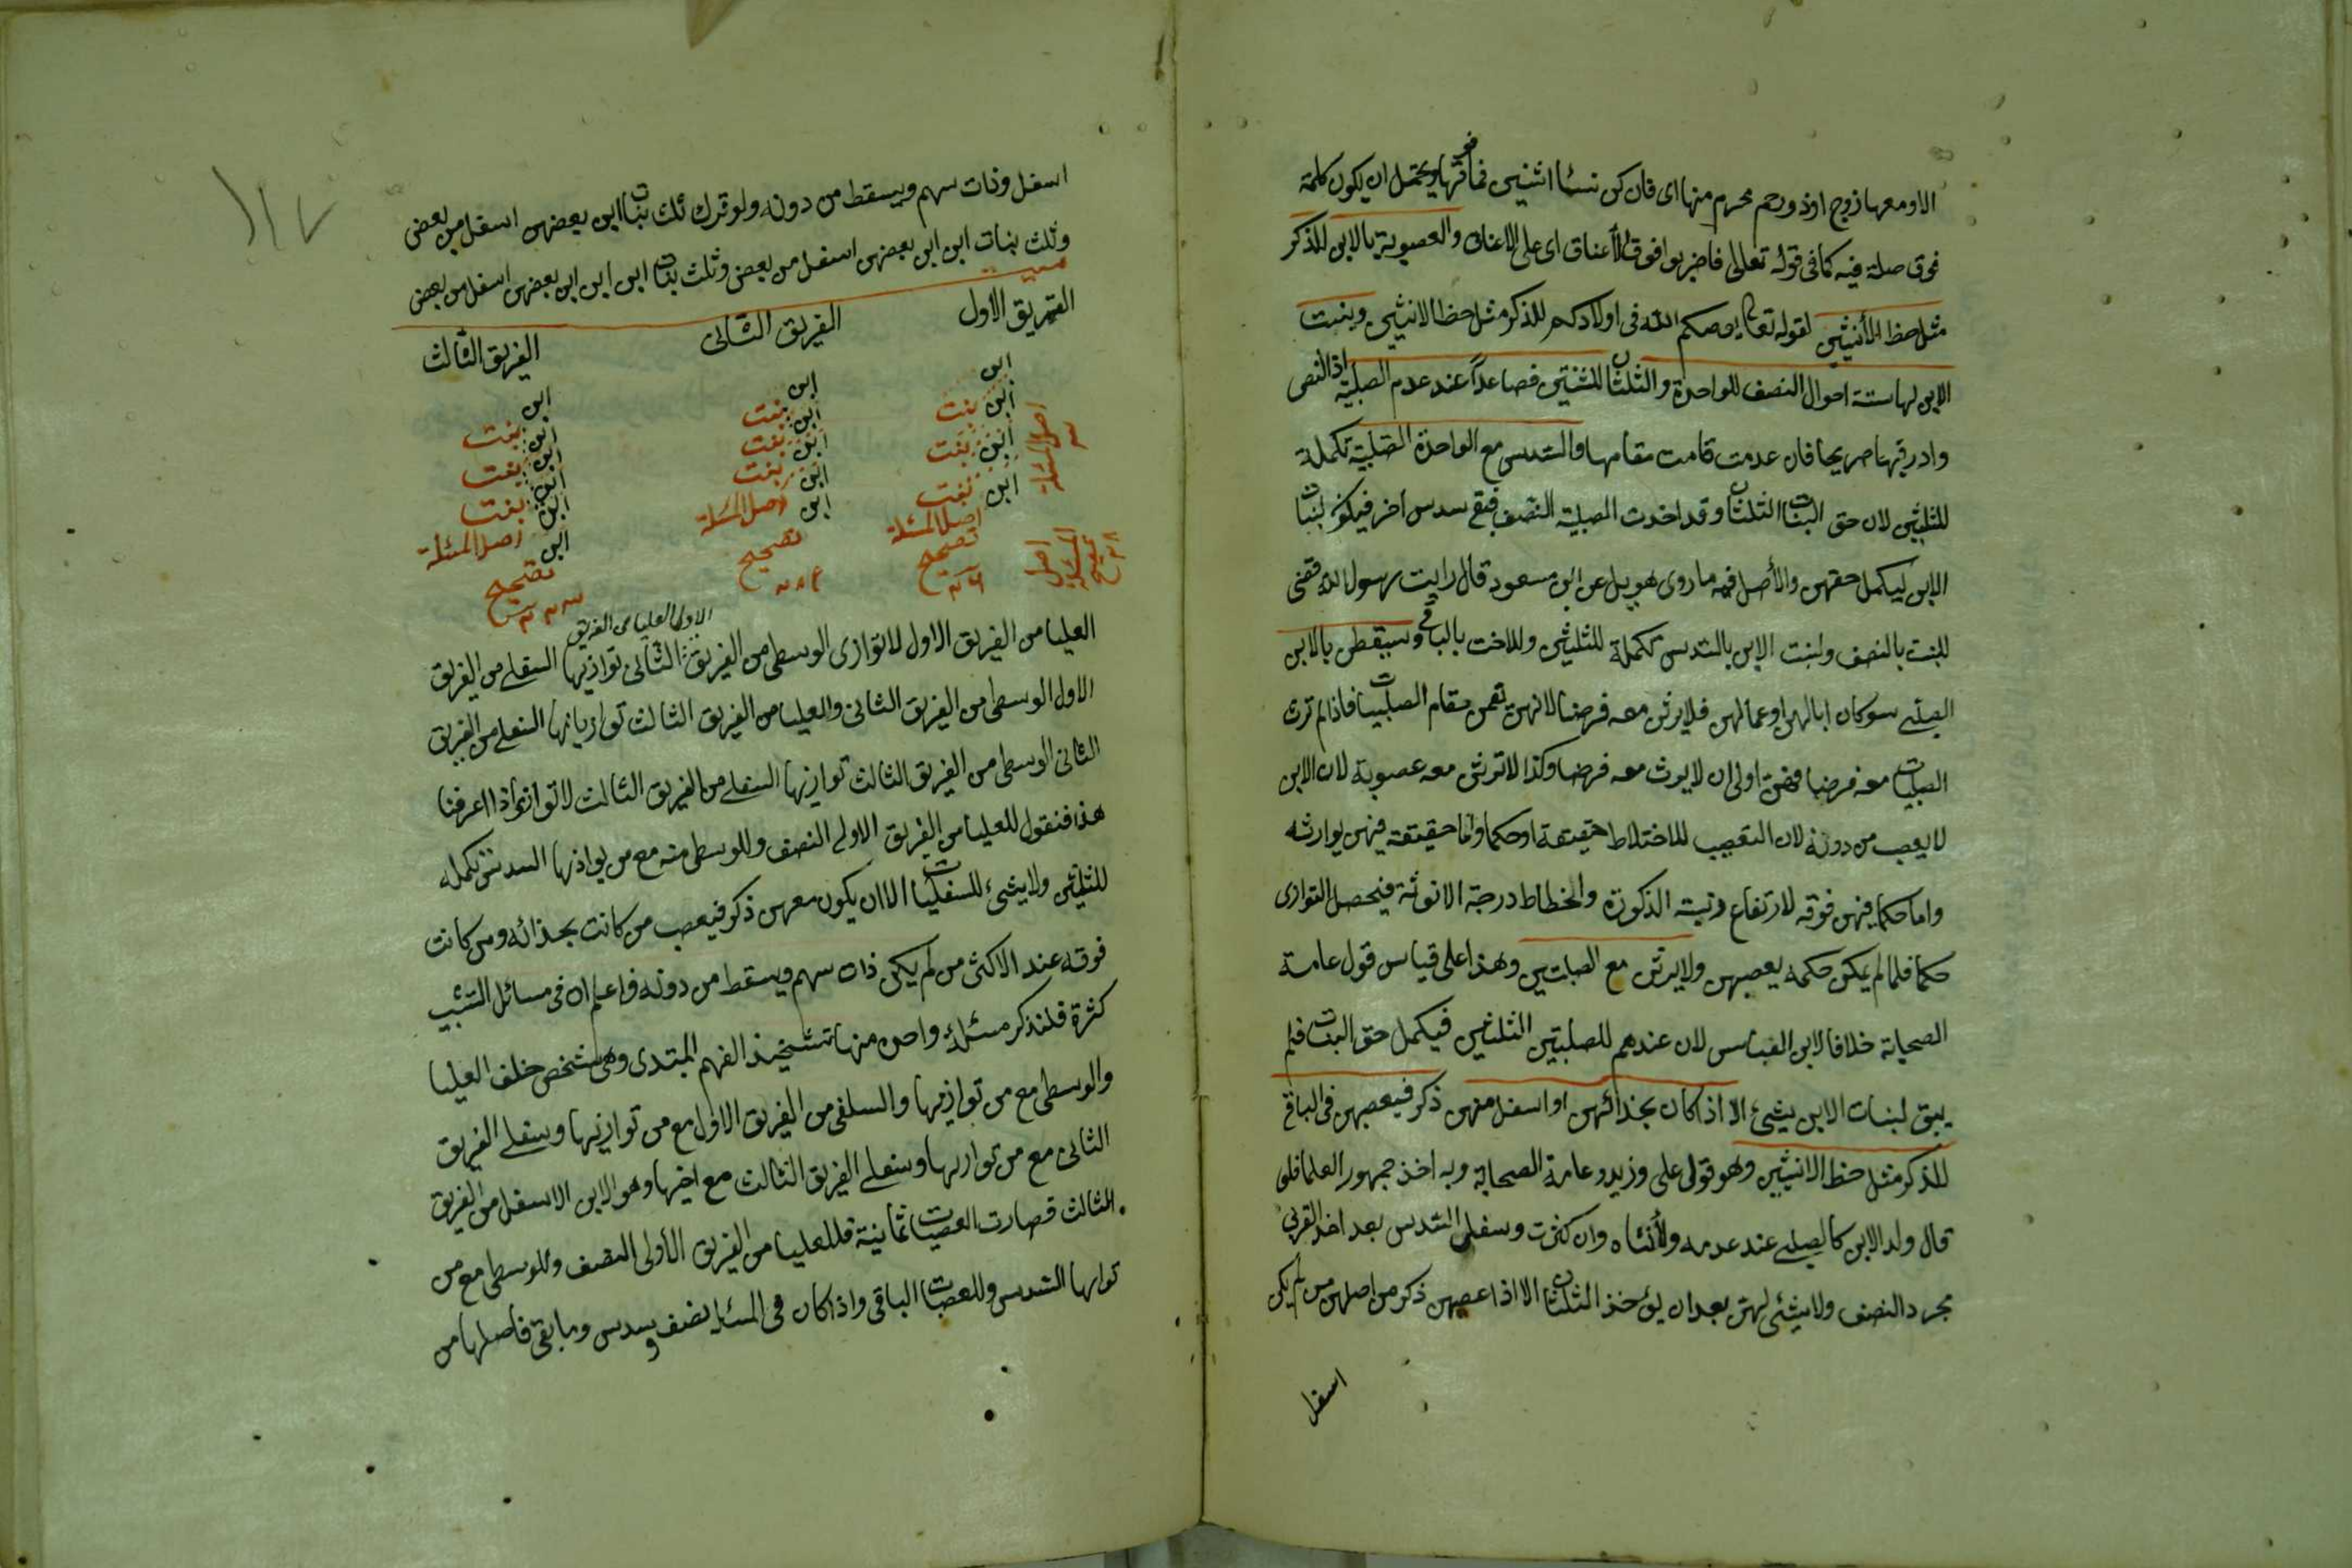 الا ومعها زوج او ذو رحم محرم منها اى فان كن نساء اثنتين فما فوقها ويحتمل ان يكون كلمة
فوق صلة فيه كما فى قوله تعالى فاضربوا فوق الأعناق اى على الاعناق والعصوبة بالابن للذكر
مثل حظ الأنثيين لقوله تعا يوصيكم الله فى اولادكم للذكر مثل حظ الانثيين وبنت
الابن لها ستة احوال النصف للواحدة والثلثان للثنتين فصاعداً عند عدم الصلبية اذ النص
وارد فيها صريحا فان عدمت قامت مقامها والسدس مع الواحدة الصلبية تكملة
للثلثين لان حق البنات الثلثان وقد اخذت الصلبية النصف فبقى سدس آخر فيكون لبنات
الابن ليكمل حقهن والأصل فيه ما روى هزيل عن ابن مسعود قال رايت رسول الله قضى
للبنت بالنصف ولبنت الابن بالسدس تكملة للثلثين وللاخت بالباقى ويسقطن بالابن
الصلبى سوى كان ابا لهن او عما لهن فلا يرثن معه فرضا لانهن تقمن مقام الصلبيات فاذا لم ترث
الصلبيات معه فرضا فهن اولى ان لا يرث معه فرضا وكذا لا ترثن معه عصوبة لان الابن
لا يعصب من دونه لان التعصيب للاختلاط حقيقة او حكما واما حقيقة فيهن يوازيه
واما حكما فيهن فوقه لارتفاع رتبة الذكورة وانحطاط درجة الانوثة فيحصل التوازى
حكما فلما لم يكن حكمه يعصبهن ولا يرثن مع الصلبتين وهذا على قياس قول عامة
الصحابة خلافا لابن العباس لان عندهم للصلبتين الثلثين فيكمل حق البنات فلم
يبق لبنات الابن شىء الا اذا كان بحذائهن او اسفل منهن ذكر فيعصبهن فى الباقى
للذكر مثل حظ الانثيين وهو قول على وزيد وعامة الصحابة وبه اخذ جمهور العلما فلو
قال ولد الابن كالصلبى عند عدمه ولأنثاه وان كثرت وسفلى السدس بعد اخذ القربى
مجرد النصف ولا شئ لهن بعد ان يؤخذ الثلثان الا اذا عصبهن ذكر من اصلهن من لم يكن
اسفل
١١٧
اسفل وذات سهم ويسقط من دونه ولو ترك ثلث بنات ابن بعضهن اسفل من بعض
وثلث بنات ابن ابن بعضهن اسفل من بعض وثلث بنات ابن ابن ابن بعضهن اسفل من بعض
ميت
الفريق الاول الفريق الثانى الفريق الثالث
ابن ابن ابن
ابن بنت ابن بنت ابن بنت
ابن بنت ابن بنت ابن بنت
ابن بنت ابن بنت ابن بنت
اصل المسئلة ابن اصل المسئلة ابن اصل المسئلة
تصحيح تصحيح تصحيح
الاول العليا من الفريق
العليا من الفريق الاول لا توازى الوسطى من الفريق الثانى توازيها السفلى من الفريق
الاول الوسطى من الفريق الثانى والعليا من الفريق الثالث توازيانها السفلى من الفريق
الثانى الوسطى من الفريق الثالث توازيها السفلى من الفريق الثالث لا توازيها اذا عرفنا
هذا فنقول للعليا من الفريق الاولى النصف وللوسطى منه مع من يوازيها السدس تكمله
للثلثين ولا شىء للسفليات الا ان يكون معهن ذكر فيعصب من كانت بحذائه ومن كانت
فوقه عند الاكثر من لم يكن ذات سهم ويسقط من دونه واعلم ان فى مسائل التشبيب
كثرة فلنذكر مسئلة واحدة منها تشخيذ الفهم المبتدى وهى شخص خلف العليا
والوسطى مع من توازيها والسلفى من الفريق الاول مع من توازيها وسفلى الفريق
الثانى مع من توازيها وسفلى الفريق الثالث مع اخيها وهو الابن الاسفل من الفريق
الثالث فصارت العصبات ثمانية فللعليا من الفريق الأولى النصف وللوسطى مع من
توازيها السدس وللعصبات الباقى واذا كان فى المسئلة نصف وسدس وما بقى فاصلها من